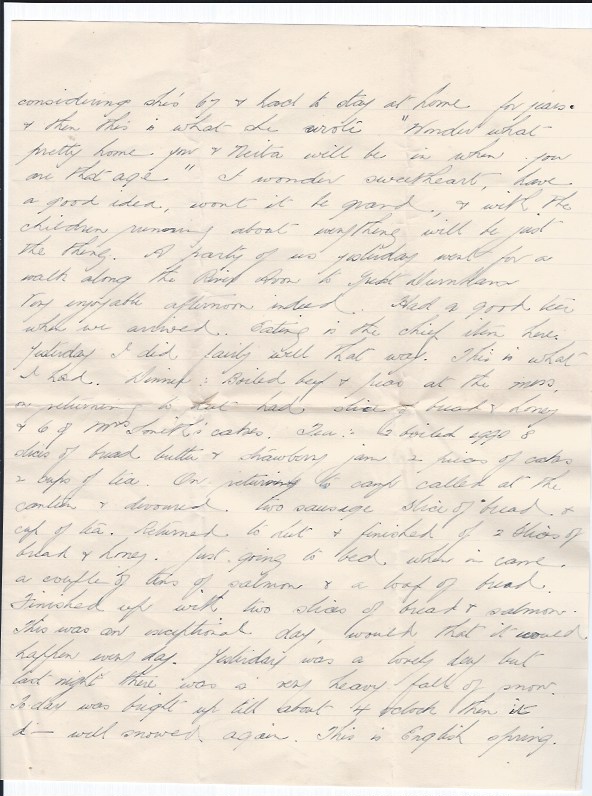 considering she's 67 & had to stay at home for years.
& then this is what she wrote "Wonder what
pretty home you & Neita will be in when you
are that age" I wonder sweetheart, have
a good idea, wont it be grand, & with the
children running about everything will be just
the thing. A party of us yesterday went for a
walk along the River Avon to Great Durnham
Very enjoyable afternoon indeed. Had a good tea
when we arrived. Eating is the chief item here.
Yesterday I did fairly well that way. This is what
I had. Dinner: Boiled beef & peas at the mess,
on returning to hut had slice of bread & honey
& 6 of Mrs Smith's cakes. Tea: 2 boiled eggs 8
slices of bread butter & strawberry jam 2 pieces of cake
2 cups of tea. On returning to camp called at the
canteen & devoured two sausage slice of bread &
cup of tea. Returned to hut & finished of 2 slices of
bread & honey. Just going to bed when in came
a couple of tins of salmon & a loaf of bread.
Finished up with two slices of bread & salmon.
This was an exceptional day, would that it would
happen every day. Yesterday was a lovely day but
last night there was a very heavy fall of snow.
To day was bright up till about 4 oclock then it
d— well snowed again. This is English spring.